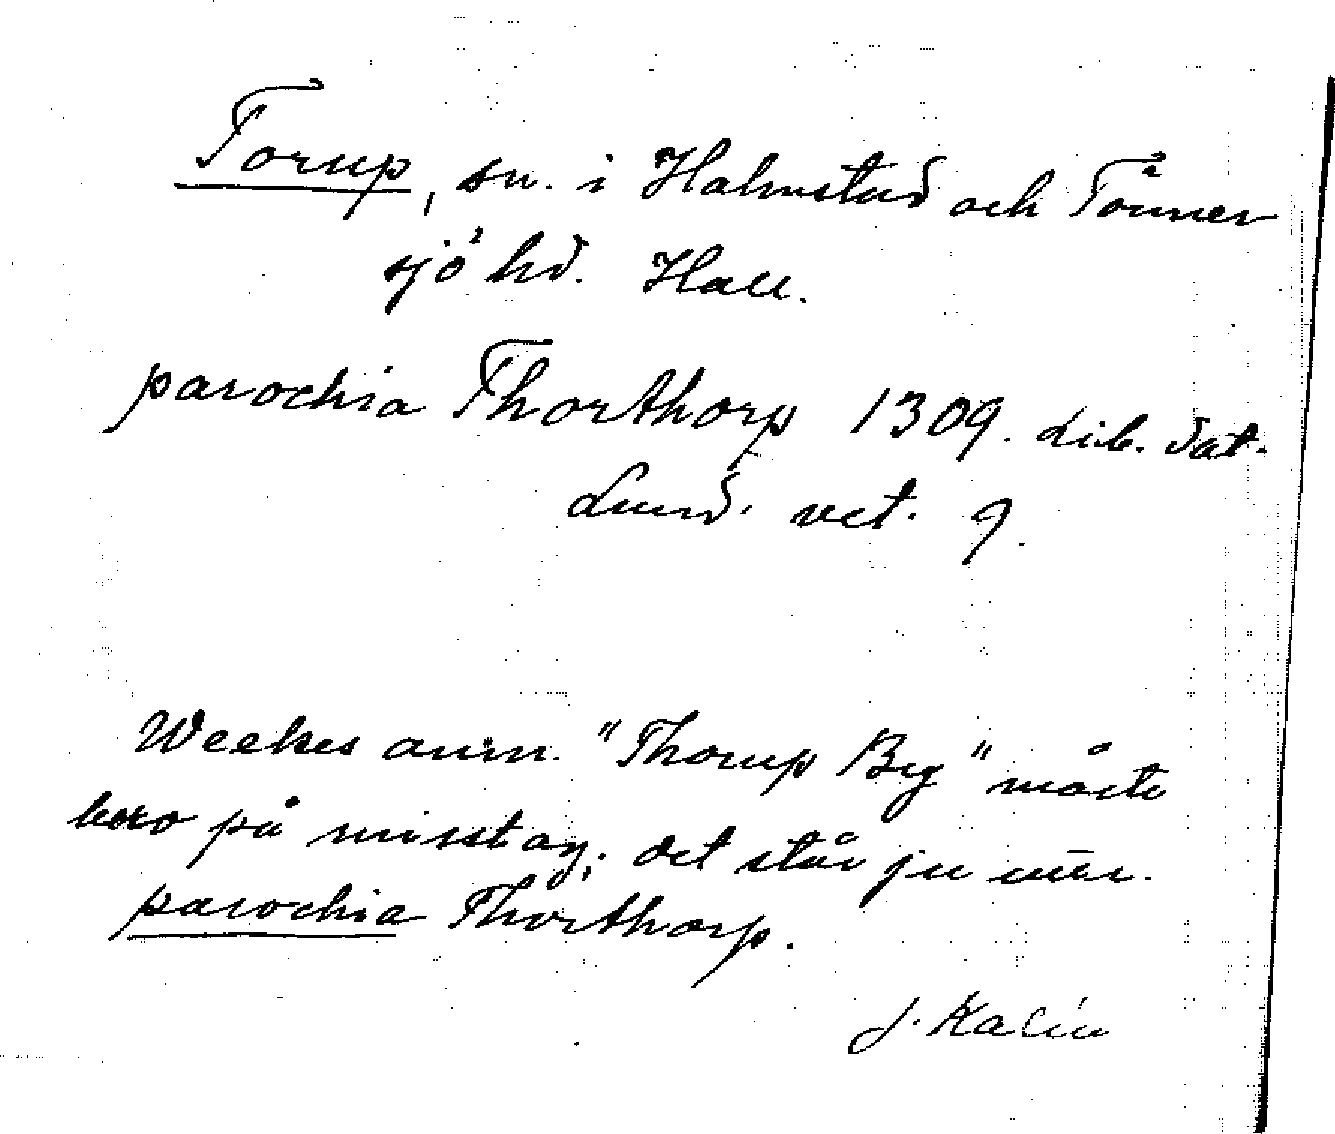 Torup, sn. i Halmstad och Tönner
sjö hd. Hall.
parochia Thorthorp 1309. Lib. dat.
Lund. vet. 9.
Weekes anm. "Thorup By" måste
bero på misstag; det står ju
parochia Thorthorp.
J. Kalén